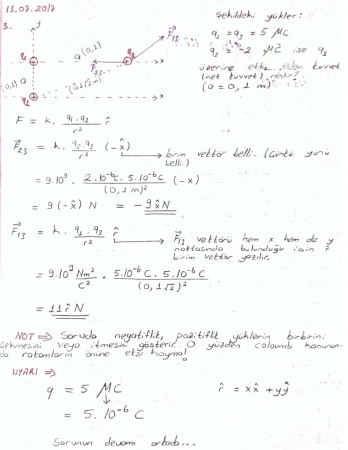 13.07.2017
3.
y
F⃗₁₃
Şekildeki yükler:
q₁ = q₃ = 5 μC
q₂ = -2 μC ise q₃
üzerine etki eden kuvvet
(net kuvvet) nedir?
(a = 0,1 m)
q₂
a (0,1)
q₃
x
F⃗₂₃
(0,1) a
(0,1√2)
q₁
x
F = k. q₁.q₂ / r² r̂
F⃗₂₃ = k. q₂.q₃ / r² (-x̂) → birim vektör belli. (Çünkü yönü
belli.)
= 9.10⁹. 2.10⁻⁶C. 5.10⁻⁶C / (0,1m)² (-x)
= 9 (-x̂) N = -9x̂N
F⃗₁₃ = k. q₁.q₃ / r² r̂ → F⃗₁₃ vektörü hem x hem de y
noktasında bulunduğu için r̂
birim vektör yazılır.
= 9.10⁹ Nm²/C² . 5.10⁻⁶C. 5.10⁻⁶C / (0,1√2)²
= 11 r̂ N
NOT ⇒ Soruda negatiflik, pozitiflik yüklerin birbirini
çekmesini veya itmesini gösterir. O yüzden coloumb kanunun-
da rakamların önüne etki koyma!
UYARI ⇒
q = 5 μC
r̂ = xx̂ + yŷ
= 5.10⁻⁶ C
Sorunun devamı arkada...